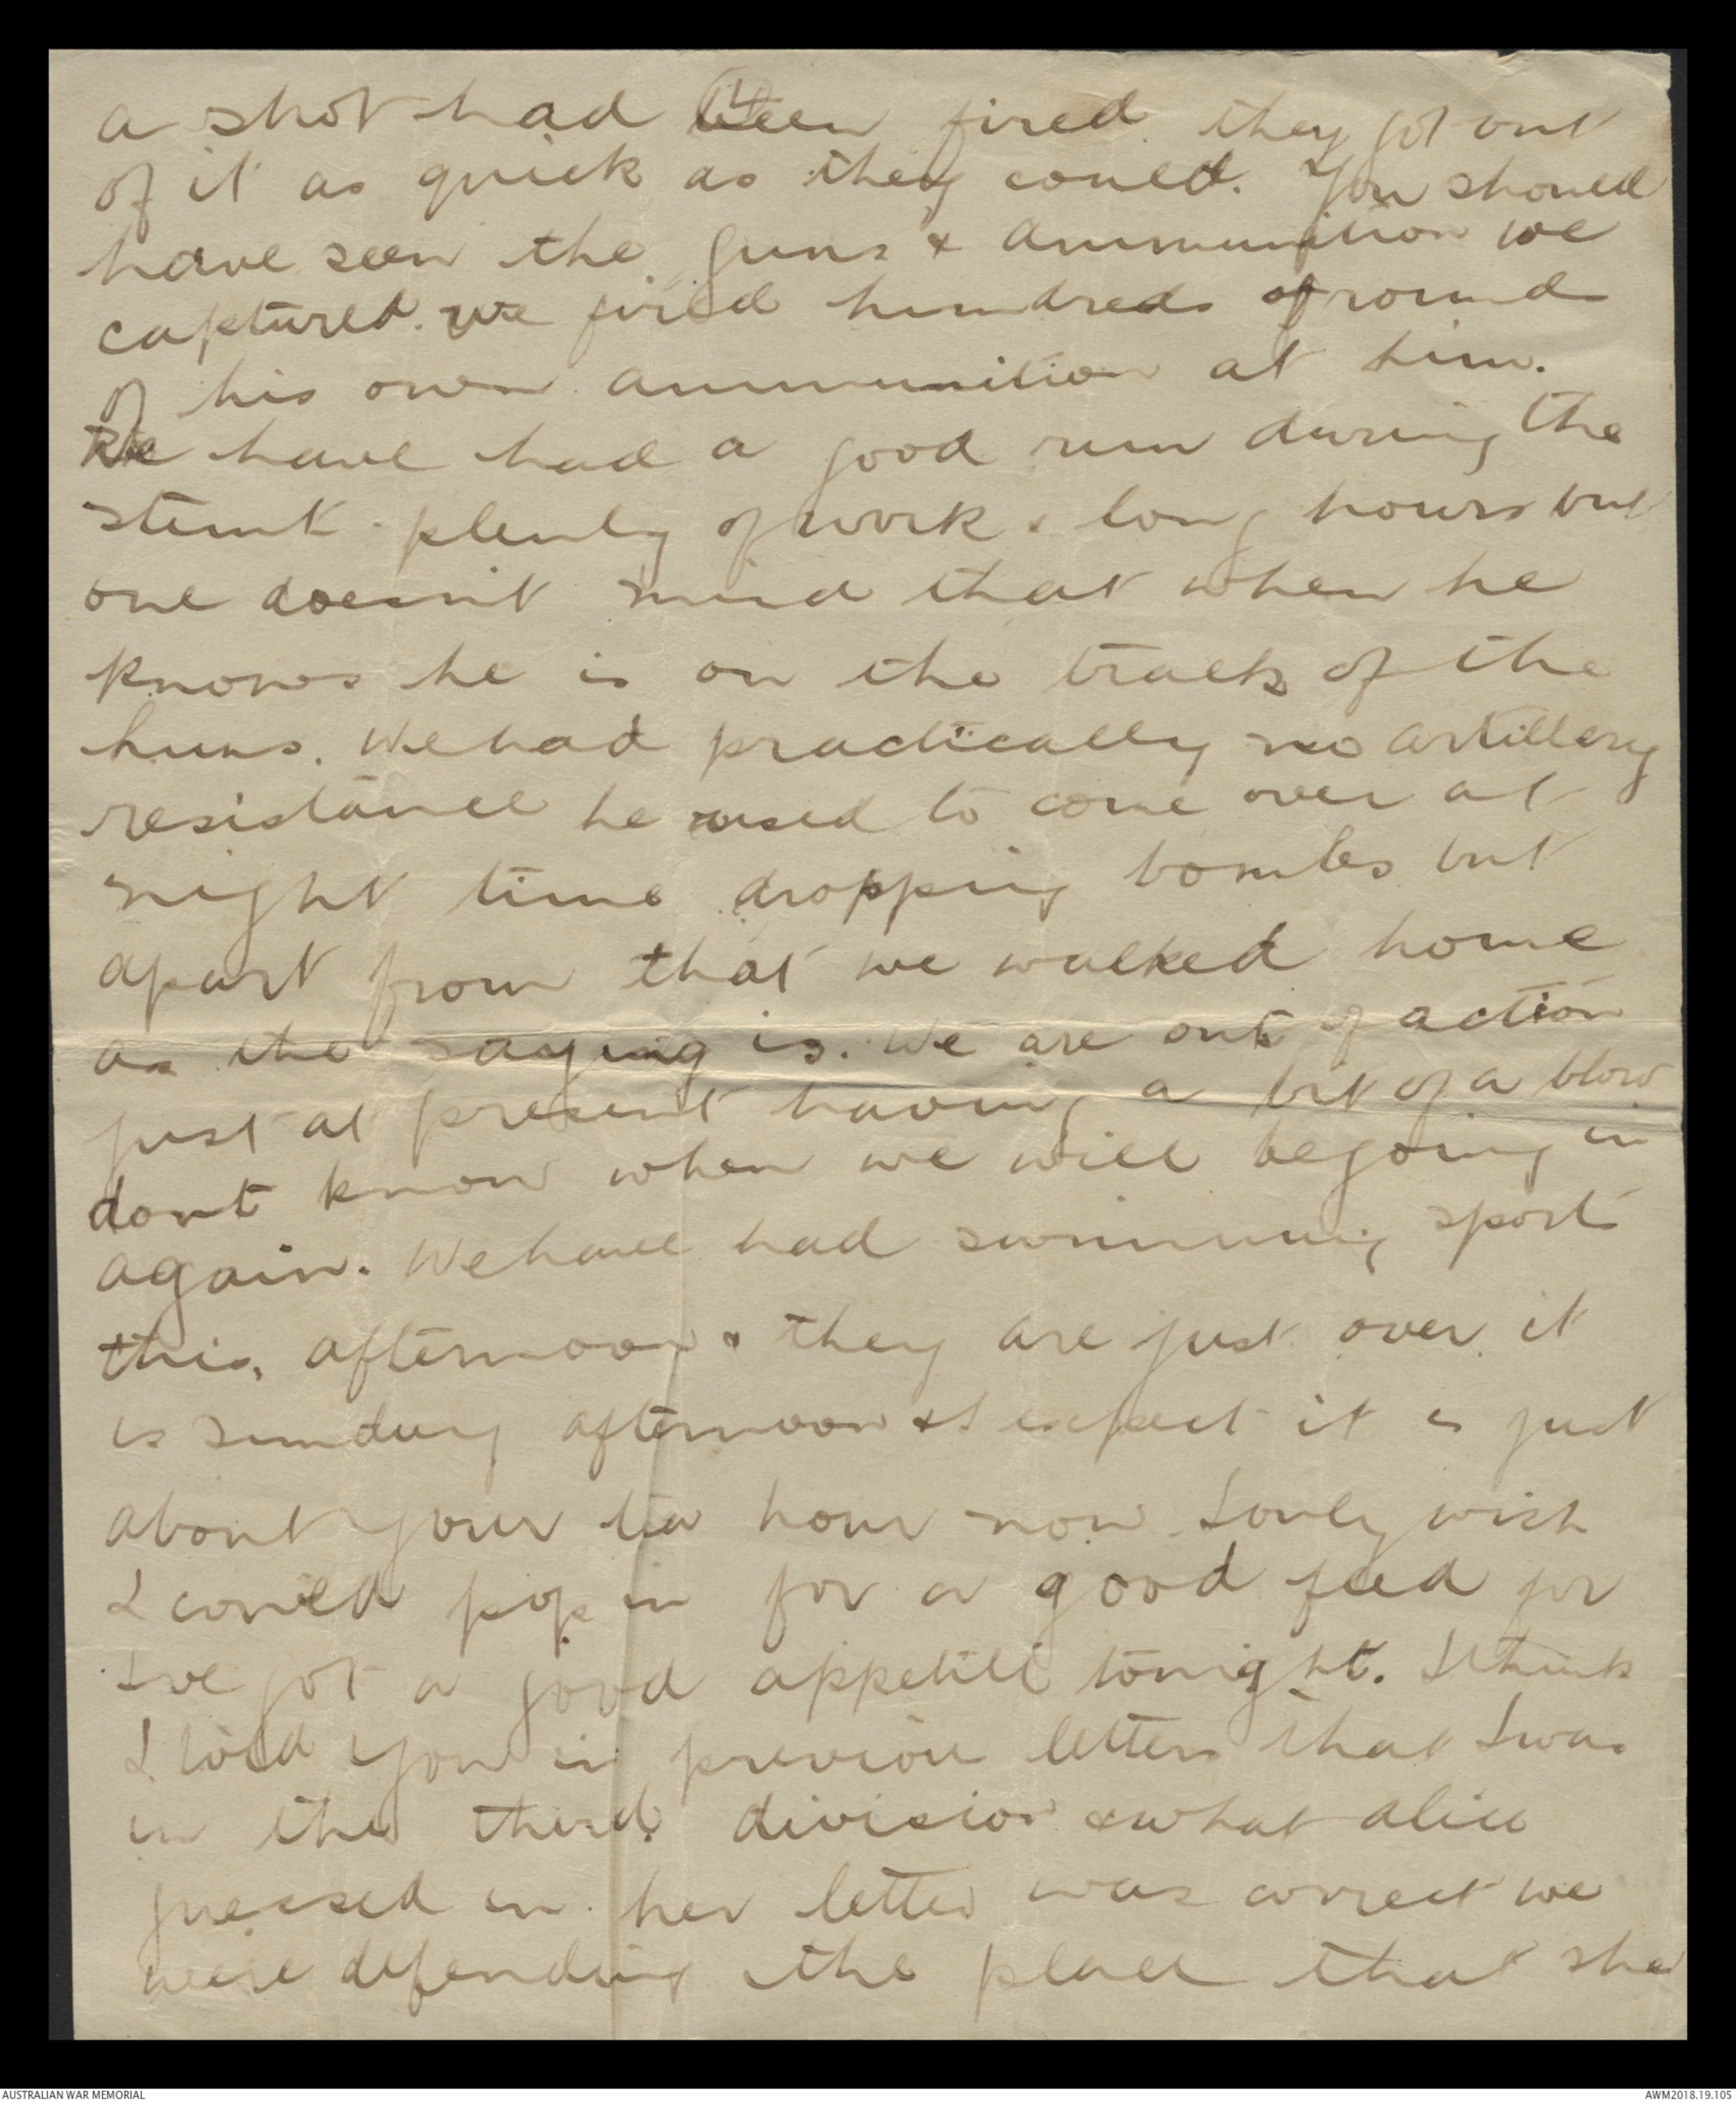 a shot had been fired they got out
of it as quick as they could. You should
have seen the guns & ammunition we
captured. we fired hundreds of rounds
of his own ammunition at him.
We have had a good run during the
stunt plenty of work & long hours but
one doesn't mind that when he
knows he is on the track of the
huns. We had practically no artillery
resistance he used to come over at
night time dropping bombs but
apart from that we walked home
as the saying is. We are out of action
just at present having a bit of a blow
dont know when we will be going in
again. We have had swimming sports
this afternoon & they are just over it
is sunday afternoon & I expect it is just
about your tea hour now I only wish
I could pop in for a good feed for
Ive got a good appetite tonight. I think
I told you in previous letters that I was
in the third division & what alice
guessed in her letter was correct we
were defending the place that she
AUSTRALIAN WAR MEMORIAL
AWM2018.19.105